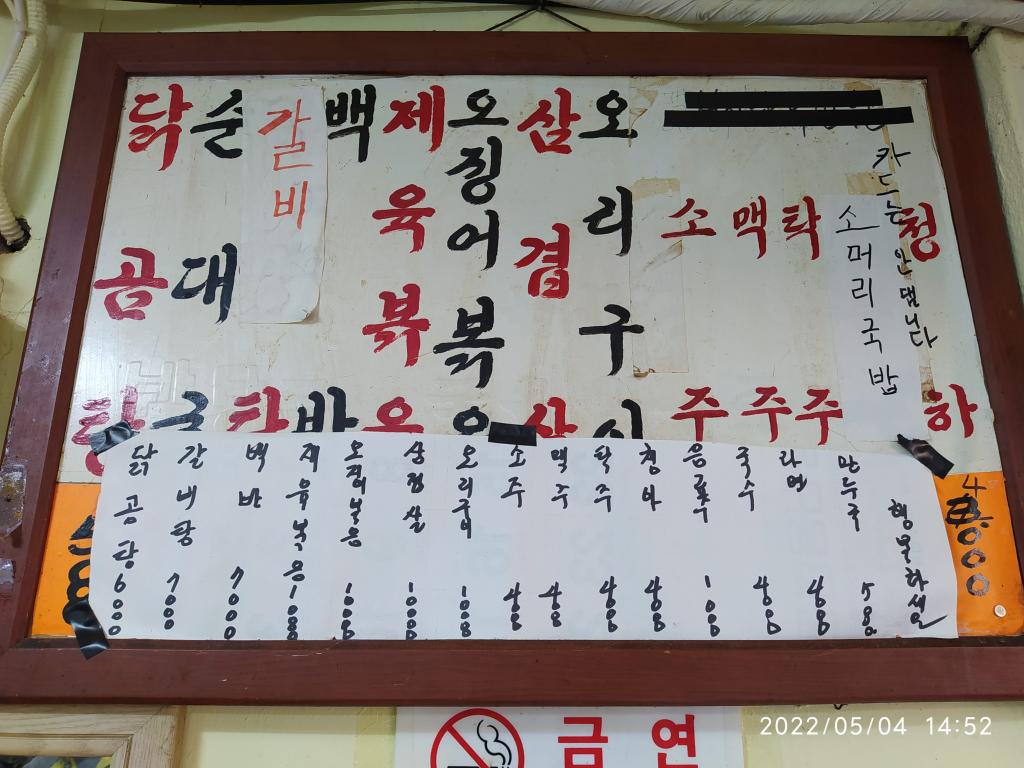 닭곰탕
순대국
갈비
백반
제육볶음
오징어볶음
삼겹살
오리구이
소주
맥주
탁주
카드는 안됍니다
소머리국밥
청하
닭곰탕 6000
갈비탕 7000
백반 7000
제육볶음 10000
오징어볶음 10000
삼겹살 10000
오리구이 10000
소주 4000
맥주 4000
탁주 4000
청하 4000
음료수 1000
국수 4000
라면 4000
만두국 5000
행복하세요
4000
금연
2022/05/04 14:52